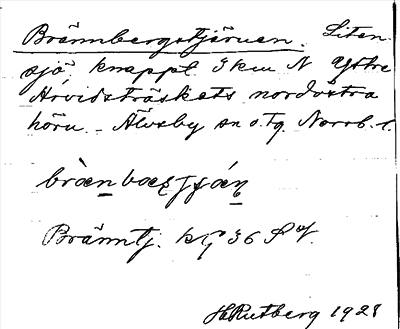 Brännbergstjärnen. Liten
sjö knappt 3 km N Yttre
Arvidsträskets nordöstra
hörn. Älvsby sn o. tg Norrb. l.
Bränntj. kç 36
HRutberg 1928